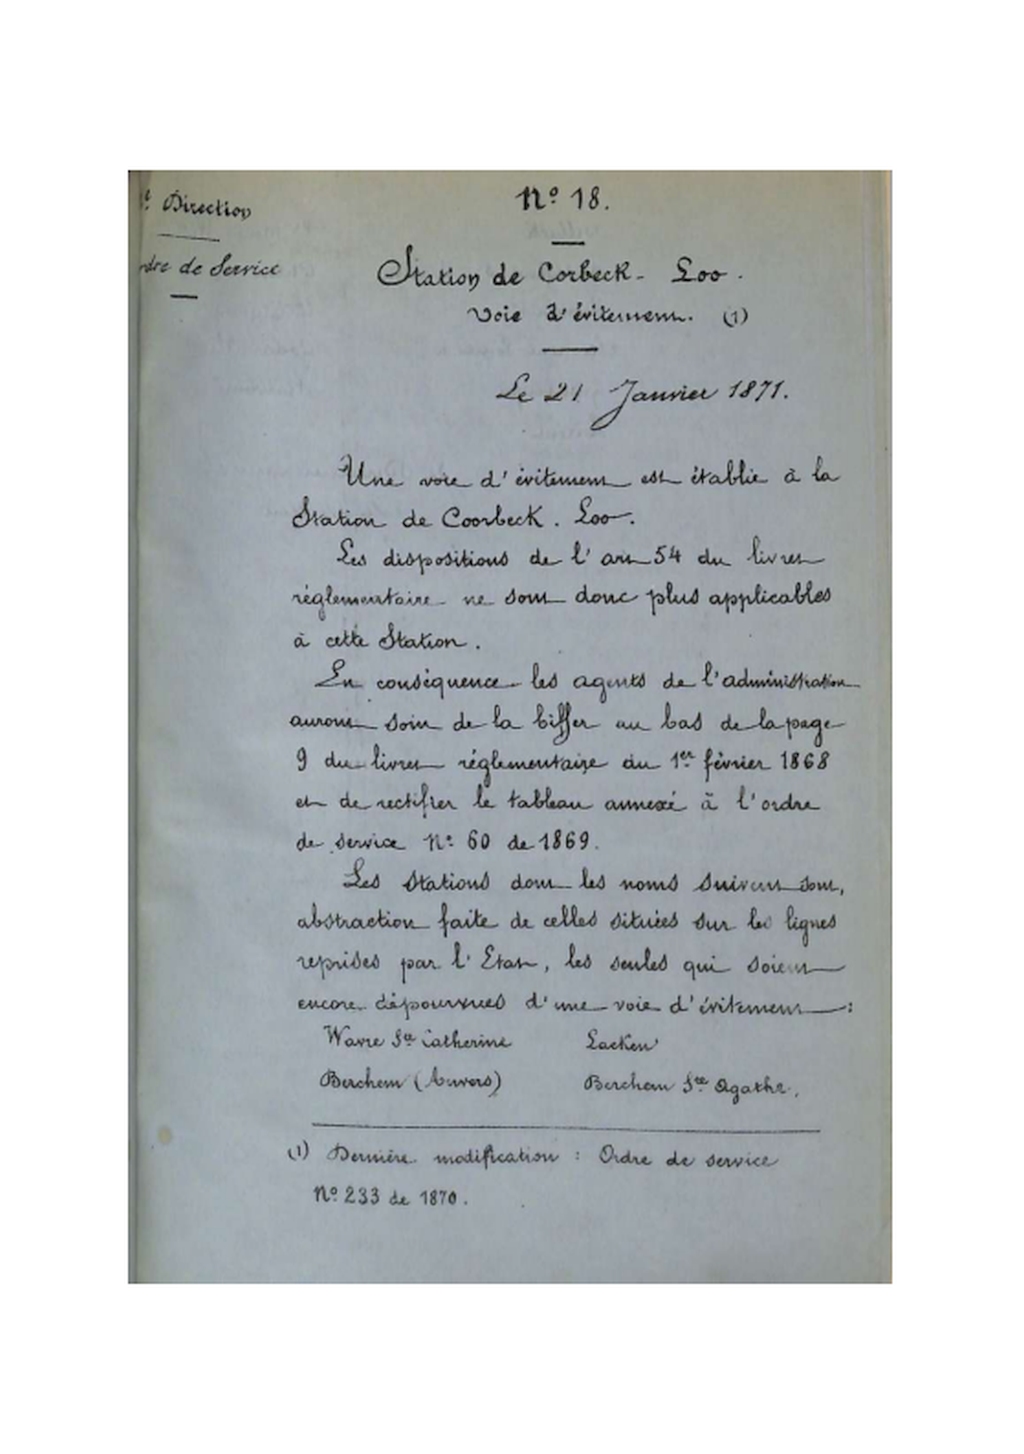 e Direction
rdre de Service
Nº 18.
Station de Corbeck-Loo.
Voie d'évitement. (1)
Le 21 Janvier 1871.
Une voie d'évitement est établie à la
Station de Coorbeck. Loo.
Les dispositions de l'art 54 du livret
réglementaire ne sont donc plus applicables
à cette Station.
En conséquence les agents de l'administration
auront soin de la biffer au bas de la page
9 du livret réglementaire du 1er février 1868
et de rectifier le tableau annexé à l'ordre
de service Nº 60 de 1869.
Les stations dont les noms suivent sont,
abstraction faite de celles situées sur les lignes
reprises par l'Etat, les seules qui soient
encore dépourvues d'une voie d'évitement :
Wavre Ste Catherine Laeken
Berchem (Anvers) Berchem Ste Agathe.
(1) Dernière modification : Ordre de service
Nº 233 de 1870.